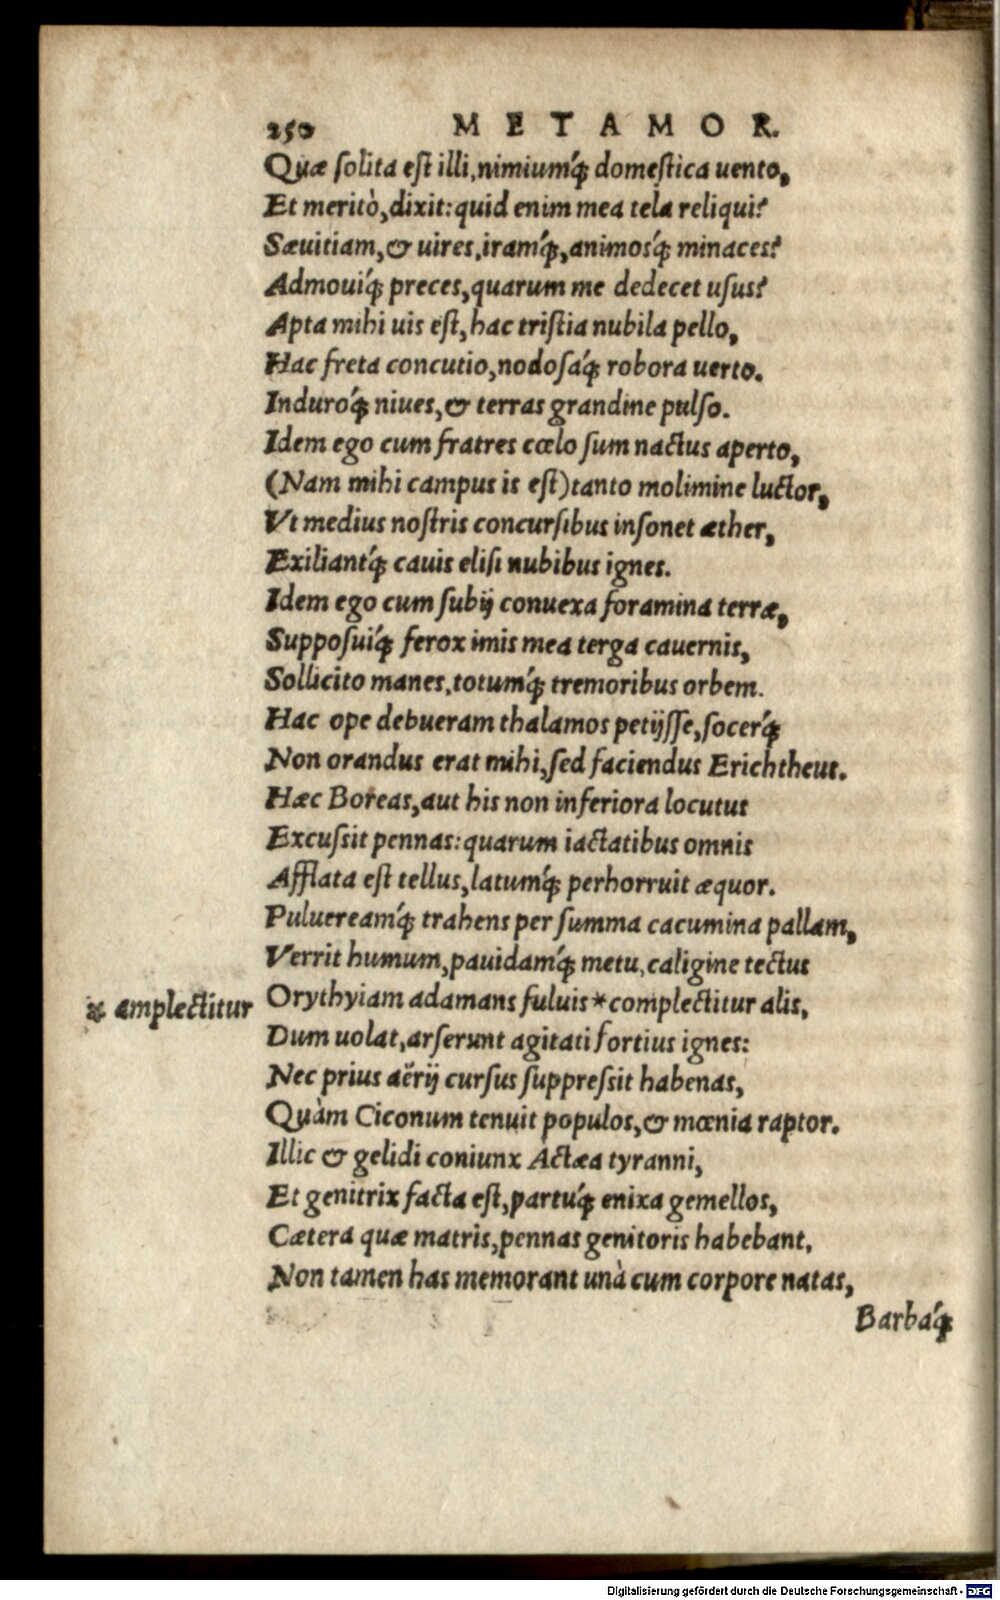 250 METAMOR.
Quæ ſolita eſt illi, nimiumq́; domeſtica uento,
Et meritò, dixit: quid enim mea tela reliqui?
Sæuitiam, & uires, iramq́;, animosq́; minaces?
Admouiq́; preces, quarum me dedecet uſus?
Apta mihi uis eſt, hac triſtia nubila pello,
Hac freta concutio, nodoſaq́; robora uerto.
Induroq́; niues, & terras grandine pulſo.
Idem ego cum fratres cœlo ſum nactus aperto,
(Nam mihi campus is eſt) tanto molimine luctor,
Vt medius noſtris concurſibus inſonet æther,
Exiliantq́; cauis eliſi nubibus ignes.
Idem ego cum ſubij conuexa foramina terræ,
Suppoſuiq́; ferox imis mea terga cauernis,
Sollicito manes, totumq́; tremoribus orbem.
Hac ope debueram thalamos petijſſe, ſocerq́;
Non orandus erat mihi, ſed faciendus Erichtheus.
Hæc Boreas, aut his non inferiora locutus
Excuſsit pennas: quarum iactatibus omnis
Afflata eſt tellus, latumq́; perhorruit æquor.
Puluereamq́; trahens per ſumma cacumina pallam,
Verrit humum, pauidamq́; metu, caligine tectus
* amplectitur Orythyiam adamans fuluis * complectitur alis,
Dum uolat, arſerunt agitati fortius ignes:
Nec prius aërij curſus ſuppreſsit habenas,
Quàm Ciconum tenuit populos, & mœnia raptor.
Illic & gelidi coniunx Actæa tyranni,
Et genitrix facta eſt, partuq́; enixa gemellos,
Cætera quæ matris, pennas genitoris habebant,
Non tamen has memorant unà cum corpore natas,
Barbaq́;
Digitalisierung gefördert durch die Deutsche Forschungsgemeinschaft - DFG